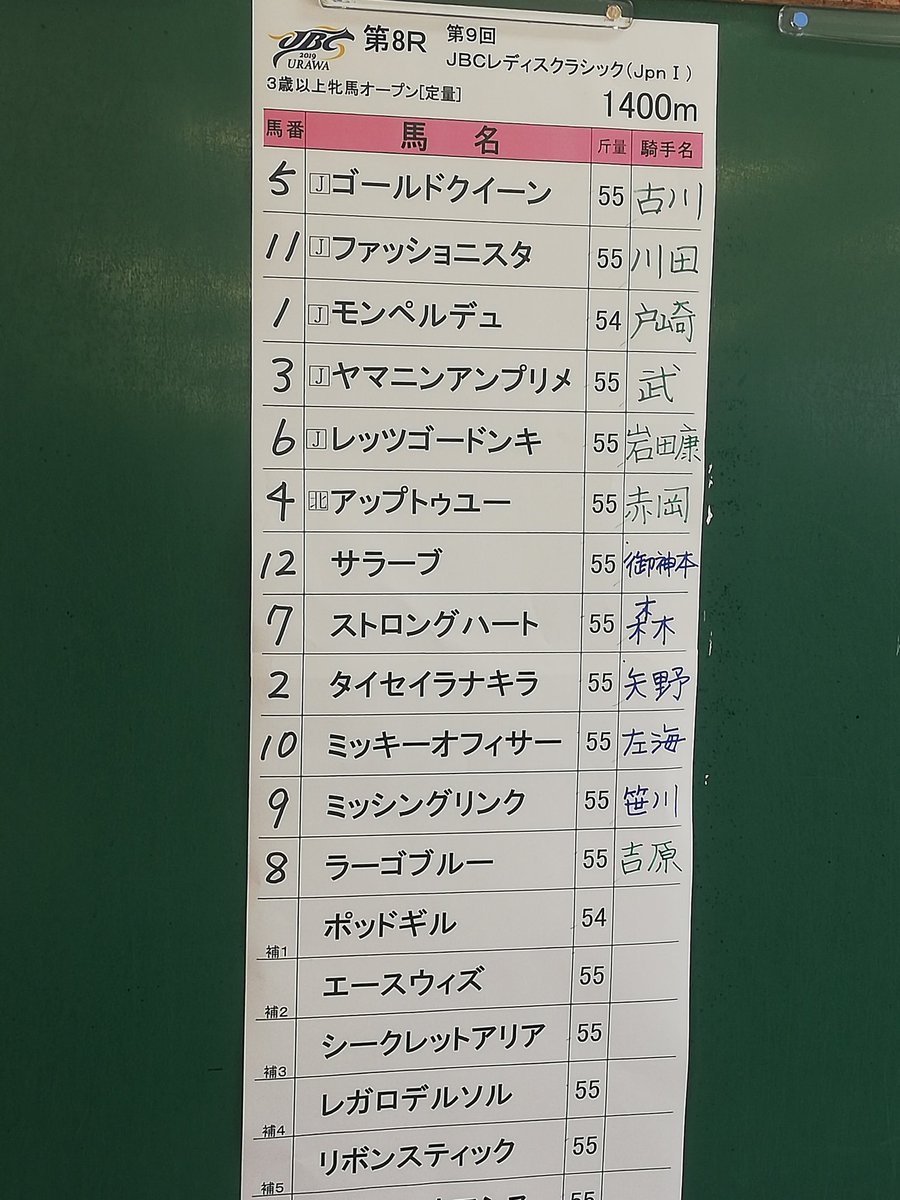 JBC 2019 URAWA
第8R 第9回
JBCレディスクラシック(JpnⅠ)
3歳以上牝馬オープン[定量]
1400m
馬番 馬名 斤量 騎手名
5 J ゴールドクイーン 55 古川
11 J ファッショニスタ 55 川田
1 J モンペルデュ 54 戸崎
3 J ヤマニンアンプリメ 55 武
6 J レッツゴードンキ 55 岩田康
4 北 アップトゥユー 55 赤岡
12 サラーブ 55 御神本
7 ストロングハート 55 森
2 タイセイラナキラ 55 矢野
10 ミッキーオフィサー 55 左海
9 ミッシングリンク 55 笹川
8 ラーゴブルー 55 吉原
補1 ポッドギル 54
補2 エースウィズ 55
補3 シークレットアリア 55
補4 レガロデルソル 55
補5 リボンスティック 55
55